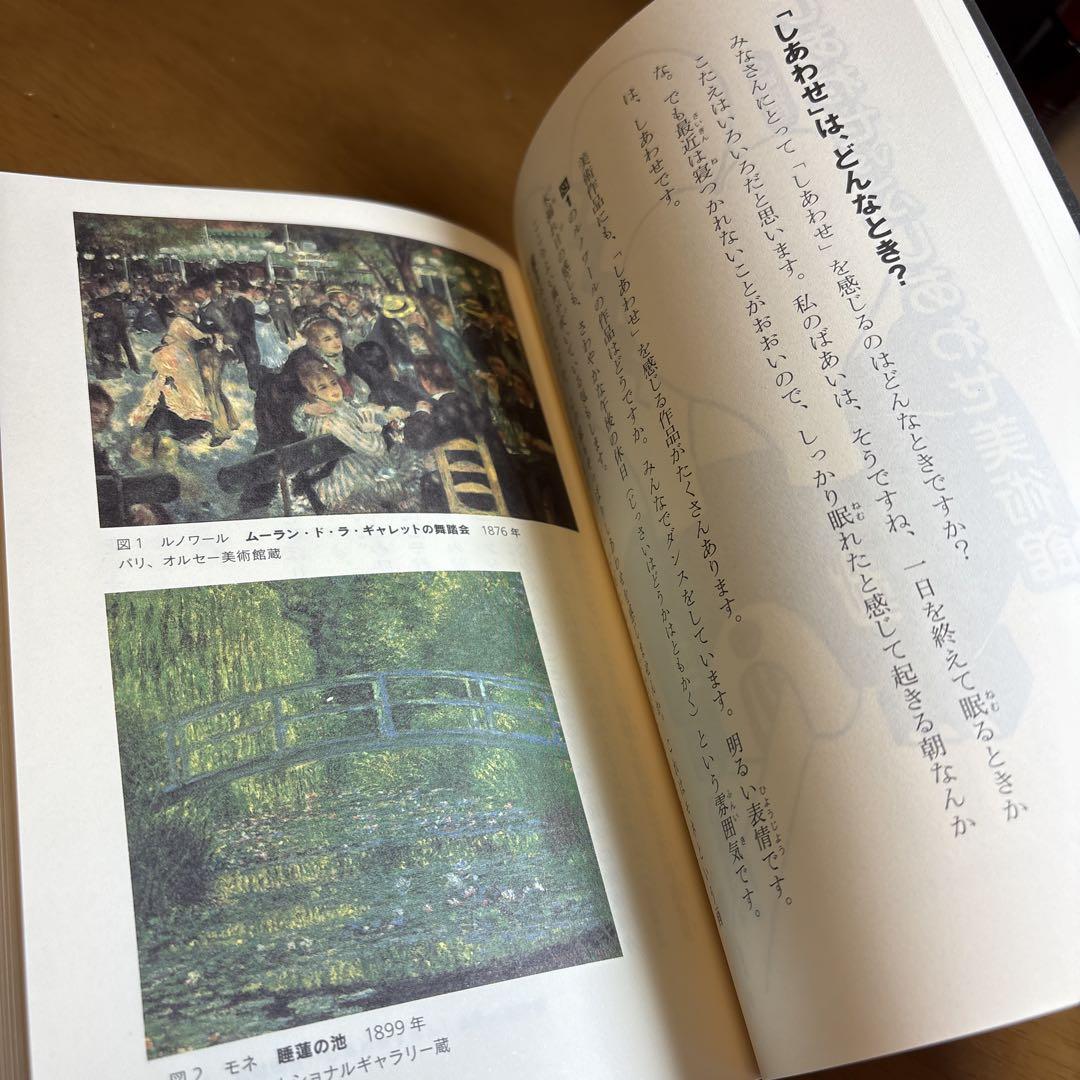 「しあわせ」は、どんなとき？
みなさんにとって「しあわせ」を感じるのはどんなときですか？
こたえはいろいろだと思います。私のばあいは、そうですね、一日を終えて眠るときか
な。でも最近は寝つかれないことがおおいので、しっかり眠れたと感じて起きる朝なんか
は、しあわせです。
美術作品にも、「しあわせ」を感じる作品がたくさんあります。
図1のルノワールの作品はどうですか。みんなでダンスをしています。明るい表情です。
さわやかな午後の休日（じっさいはどうかはともかく）という雰囲気です。
図1 ルノワール ムーラン・ド・ラ・ギャレットの舞踏会 1876年
パリ、オルセー美術館蔵
図2 モネ 睡蓮の池 1899年
ショナルギャラリー蔵